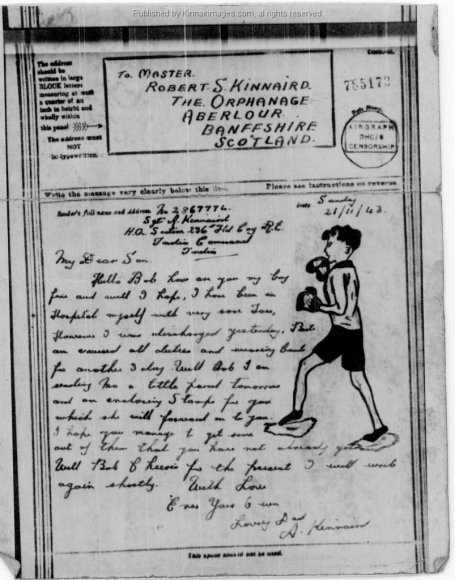 Published by Kinnairimages.com, all rights reserved
The address
should be
written in large
BLOCK letters
measuring at
a quarter of an
inch in height and
wholly within
this panel
The address must
NOT
be typewritten.
To. MASTER.
ROBERT. S. KINNAIRD.
THE. ORPHANAGE
ABERLOUR.
BANFFSHIRE
SCOTLAND.
785172
AIRGRAPH
CENSORSHIP
Write the message very clearly below this line.
Please see instructions on reverse
Sender's full name and address No 2867774.
Sgt A. Kinnaird
H.Q. Section 236th Fld Coy R.E.
India Command
India
Date Sunday
21/11/43.
My Dear Son.
Hello Bob how are you my boy
fine and well I hope, I have been in
Hospital myself with very sore
However I was discharged yesterday, But
am excused all duties and wearing
for another 3 day. Well Bob I am
sending Ma a little parcel tomorrow
and am enclosing Stamps for you
which she will forward on to you.
I hope you manage to get some
out of them that you have not already
Well Bob Cheerio for the present I will
again shortly. With Love
Ever Yours
Loving Dad
A. Kinnaird
This space should not be used.